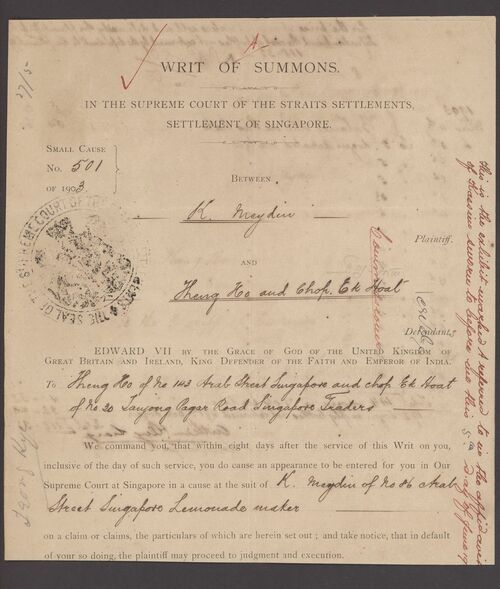 A
WRIT OF SUMMONS.
IN THE SUPREME COURT OF THE STRAITS SETTLEMENTS,
SETTLEMENT OF SINGAPORE.
SMALL CAUSE
No. 501
OF 1903
BETWEEN
K. Meydin
Plaintiff.
AND
Theng Ho and Chop Ek Hoat
Defendants
EDWARD VII BY THE GRACE OF GOD OF THE UNITED KINGDOM OF
GREAT BRITAIN AND IRELAND, KING DEFENDER OF THE FAITH AND EMPEROR OF INDIA.
To Theng Ho of No 143 Arab Street Singapore and Chop Ek Hoat
of No 20 Tanjong Pagar Road Singapore Traders
We command you, that within eight days after the service of this Writ on you,
inclusive of the day of such service, you do cause an appearance to be entered for you in Our
Supreme Court at Singapore in a cause at the suit of K. Meydin of No 86 Arab
Street Singapore Lemonade maker
on a claim or claims, the particulars of which are herein set out; and take notice, that in default
of your so doing, the plaintiff may proceed to judgment and execution.
This is the exhibit marked A referred to in the affidavit
of sworn to before me this 5th day of June
THE SEAL OF THE SUPREME COURT OF THE
27/5